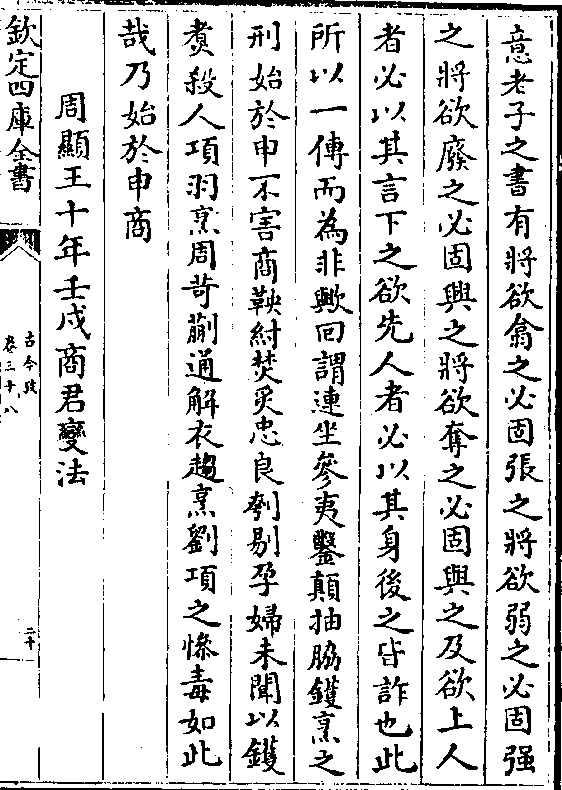 意老子之書有將欲翕之必固張之將欲弱之必固强
之將欲廢之必固興之將欲奪之必固與之及欲上人
者必以其言下之欲先人者必以其身後之皆詐也此
所以一傳而為非歟回謂連坐參夷鑿顛抽脇鑊烹之
刑始於申不害商鞅紂焚炙忠良刳剔孕婦未聞以鑊
煑殺人項羽烹周苛蒯通解衣趨烹劉項之慘毒如此
哉乃始於申商
周顯王十年壬戌商君變法
欽定四庫全書
古今攷
卷三十八
二十